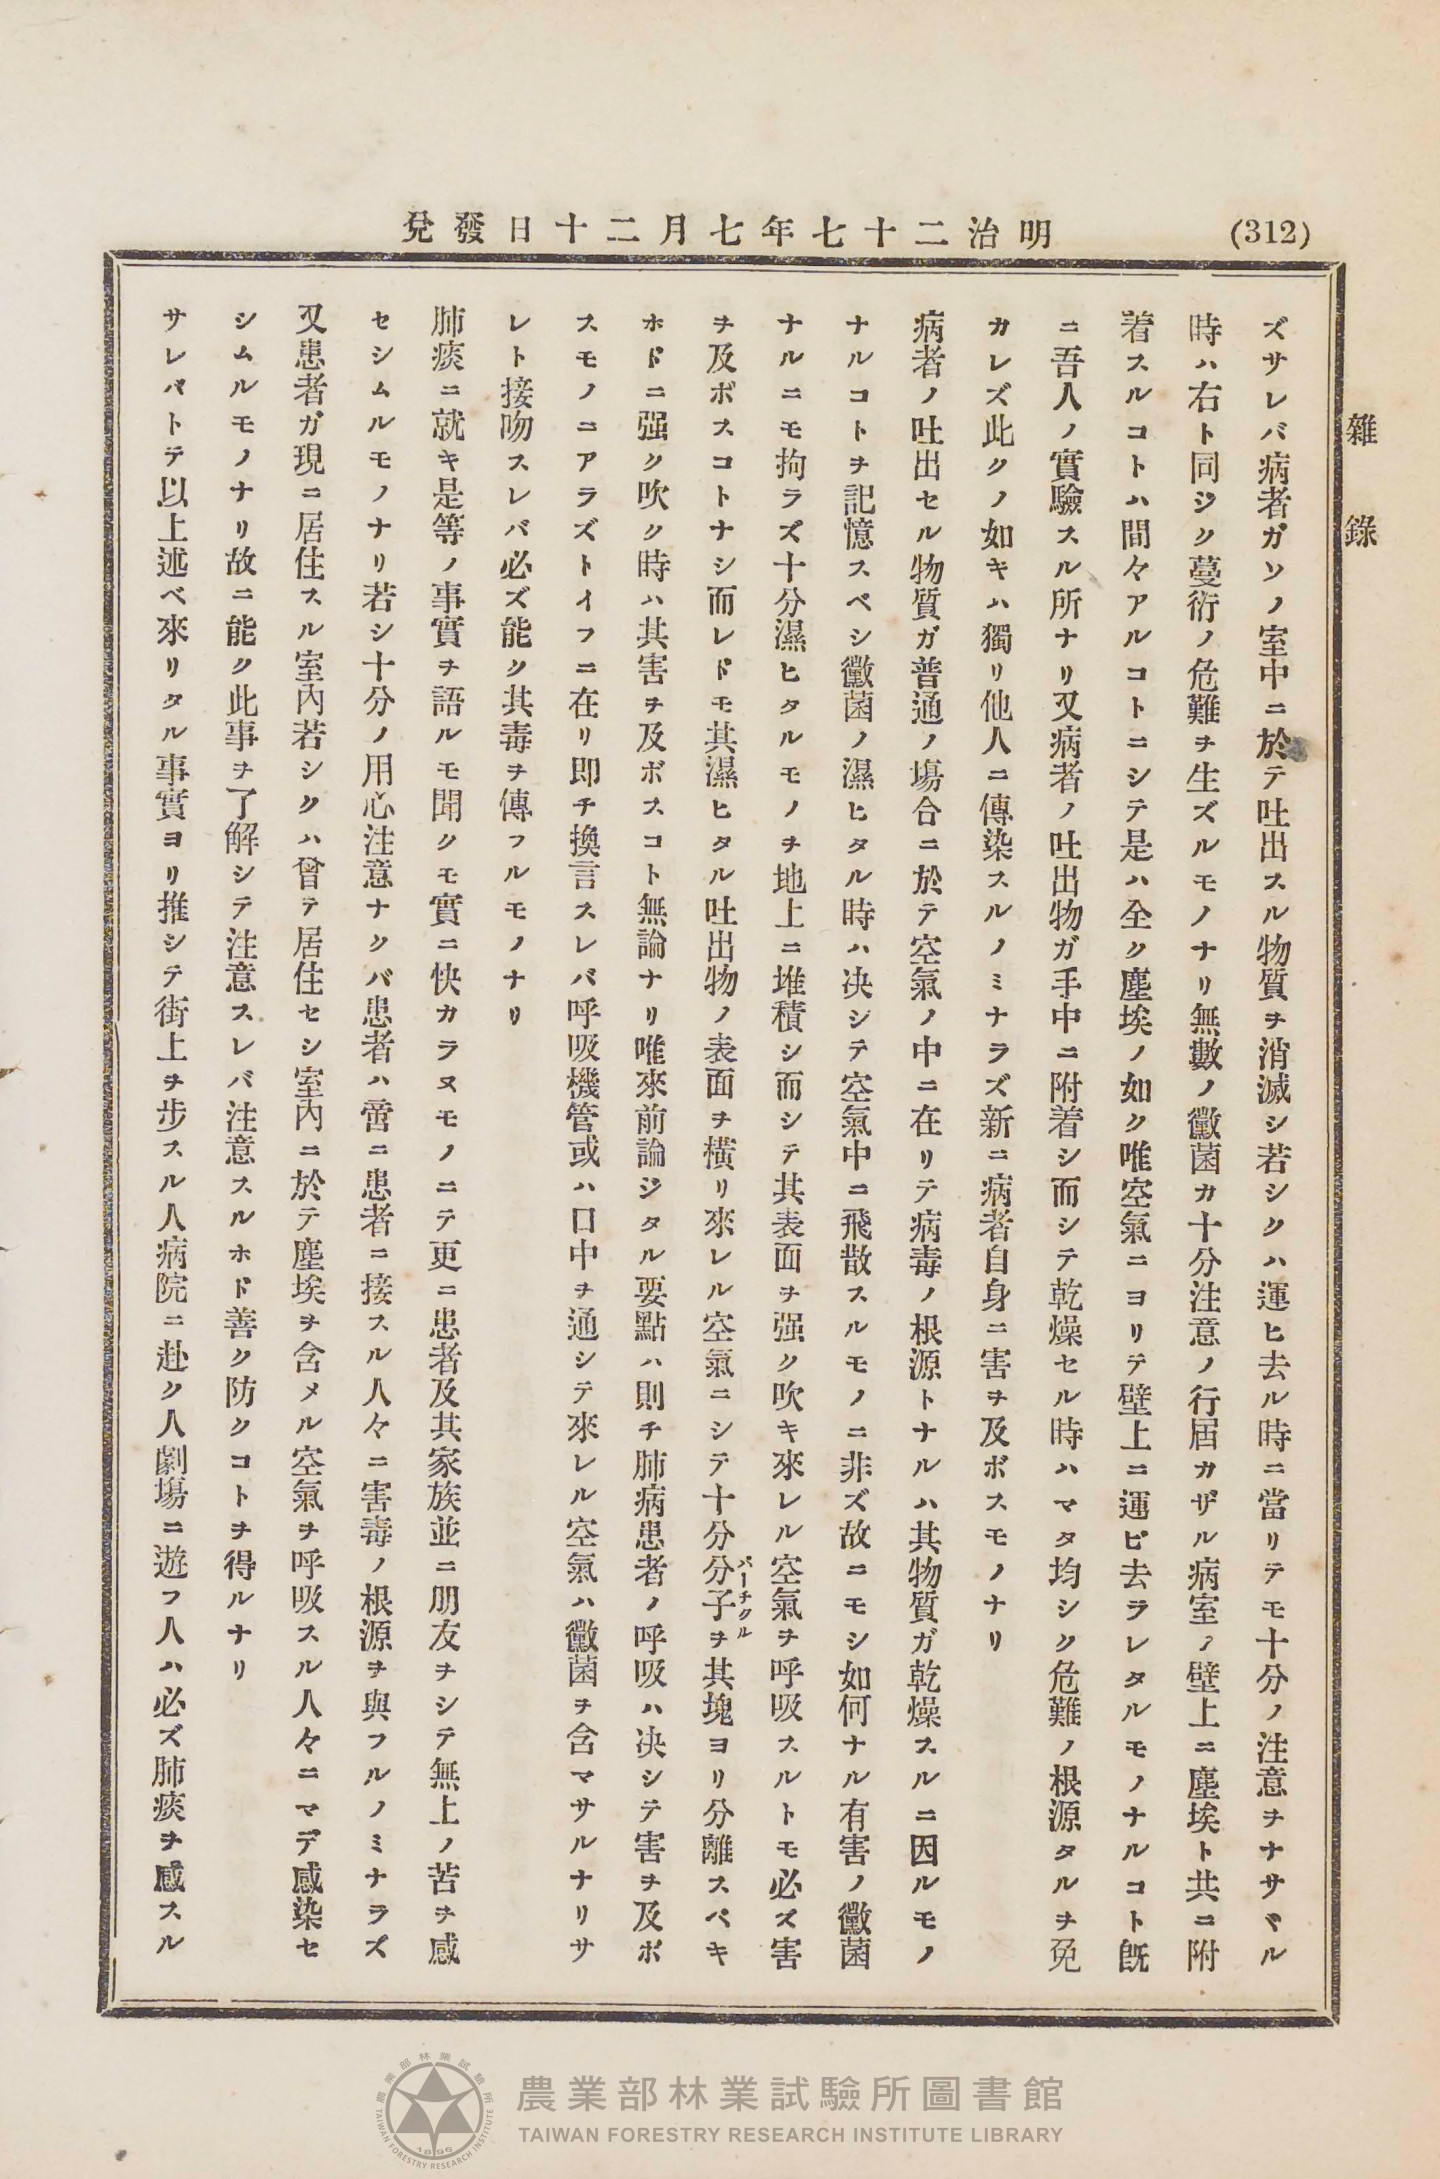 (312)
明治二十七年七月二十日發兌
雜錄
ズサレバ病者ガソノ室中ニ於テ吐出スル物質ヲ消滅シ若シクハ運ヒ去ル時ニ當リテモ十分ノ注意ヲナサヾル
時ハ右ト同ジク蔓衍ノ危難ヲ生ズルモノナリ無數ノ黴菌カ十分注意ノ行届カザル病室ノ壁上ニ塵埃ト共ニ附
着スルコトハ間々アルコトニシテ是ハ全ク塵埃ノ如ク唯空氣ニヨリテ壁上ニ運ビ去ラレタルモノナルコト既
ニ吾人ノ實驗スル所ナリ又病者ノ吐出物ガ手中ニ附着シ而シテ乾燥セル時ハマタ均シク危難ノ根源タルヲ免
カレズ此クノ如キハ獨リ他人ニ傳染スルノミナラズ新ニ病者自身ニ害ヲ及ボスモノナリ
病者ノ吐出セル物質ガ普通ノ塲合ニ於テ空氣ノ中ニ在リテ病毒ノ根源トナルハ其物質ガ乾燥スルニ因ルモノ
ナルコトヲ記憶スベシ黴菌ノ濕ヒタル時ハ决シテ空氣中ニ飛散スルモノニ非ズ故ニモシ如何ナル有害ノ黴菌
ナルニモ拘ラズ十分濕ヒタルモノヲ地上ニ堆積シ而シテ其表面ヲ强ク吹キ來レル空氣ヲ呼吸スルトモ必ズ害
ヲ及ボスコトナシ而レドモ其濕ヒタル吐出物ノ表面ヲ橫リ來レル空氣ニシテ十分分子ヲ其塊ヨリ分離スベキ
パーチクル
ホドニ强ク吹ク時ハ其害ヲ及ボスコト無論ナリ唯來前論ジタル要點ハ則チ肺病患者ノ呼吸ハ决シテ害ヲ及ボ
スモノニアラズトイフニ在リ即チ換言スレバ呼吸機管或ハ口中ヲ通シテ來レル空氣ハ黴菌ヲ含マサルナリサ
レト接吻スレバ必ズ能ク其毒ヲ傳フルモノナリ
肺痰ニ就キ是等ノ事實ヲ語ルモ聞クモ實ニ快カラヌモノニテ更ニ患者及其家族並ニ朋友ヲシテ無上ノ苦ヲ感
セシムルモノナリ若シ十分ノ用心注意ナクバ患者ハ啻ニ患者ニ接スル人々ニ害毒ノ根源ヲ與フルノミナラズ
又患者ガ現ニ居住スル室內若シクハ曾テ居住セシ室內ニ於テ塵埃ヲ含メル空氣ヲ呼吸スル人々ニマデ感染セ
シムルモノナリ故ニ能ク此事ヲ了解シテ注意スレバ注意スルホド善ク防クコトヲ得ルナリ
サレバトテ以上述ベ來リタル事實ヨリ推シテ街上ヲ步スル人病院ニ赴ク人劇塲ニ遊フ人ハ必ズ肺痰ヲ感スル
農業部林業試驗所圖書館
TAIWAN FORESTRY RESEARCH INSTITUTE LIBRARY
農業部林業試驗所
TAIWAN FORESTRY RESEARCH INSTITUTE
1896